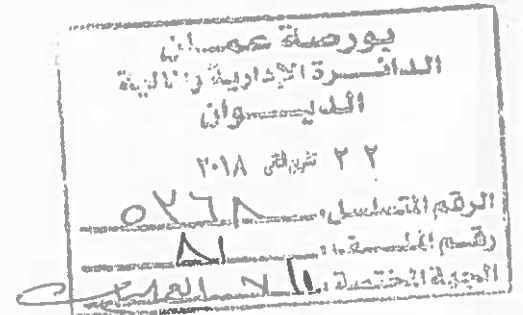 بورصة عمان
الدائرة الإدارية والمالية
الديوان
٢٢ تشرين الثاني ٢٠١٨
الرقم المتسلسل: ٥٧٦٨
رقم الملف: ٨١
الجهة المختصة: